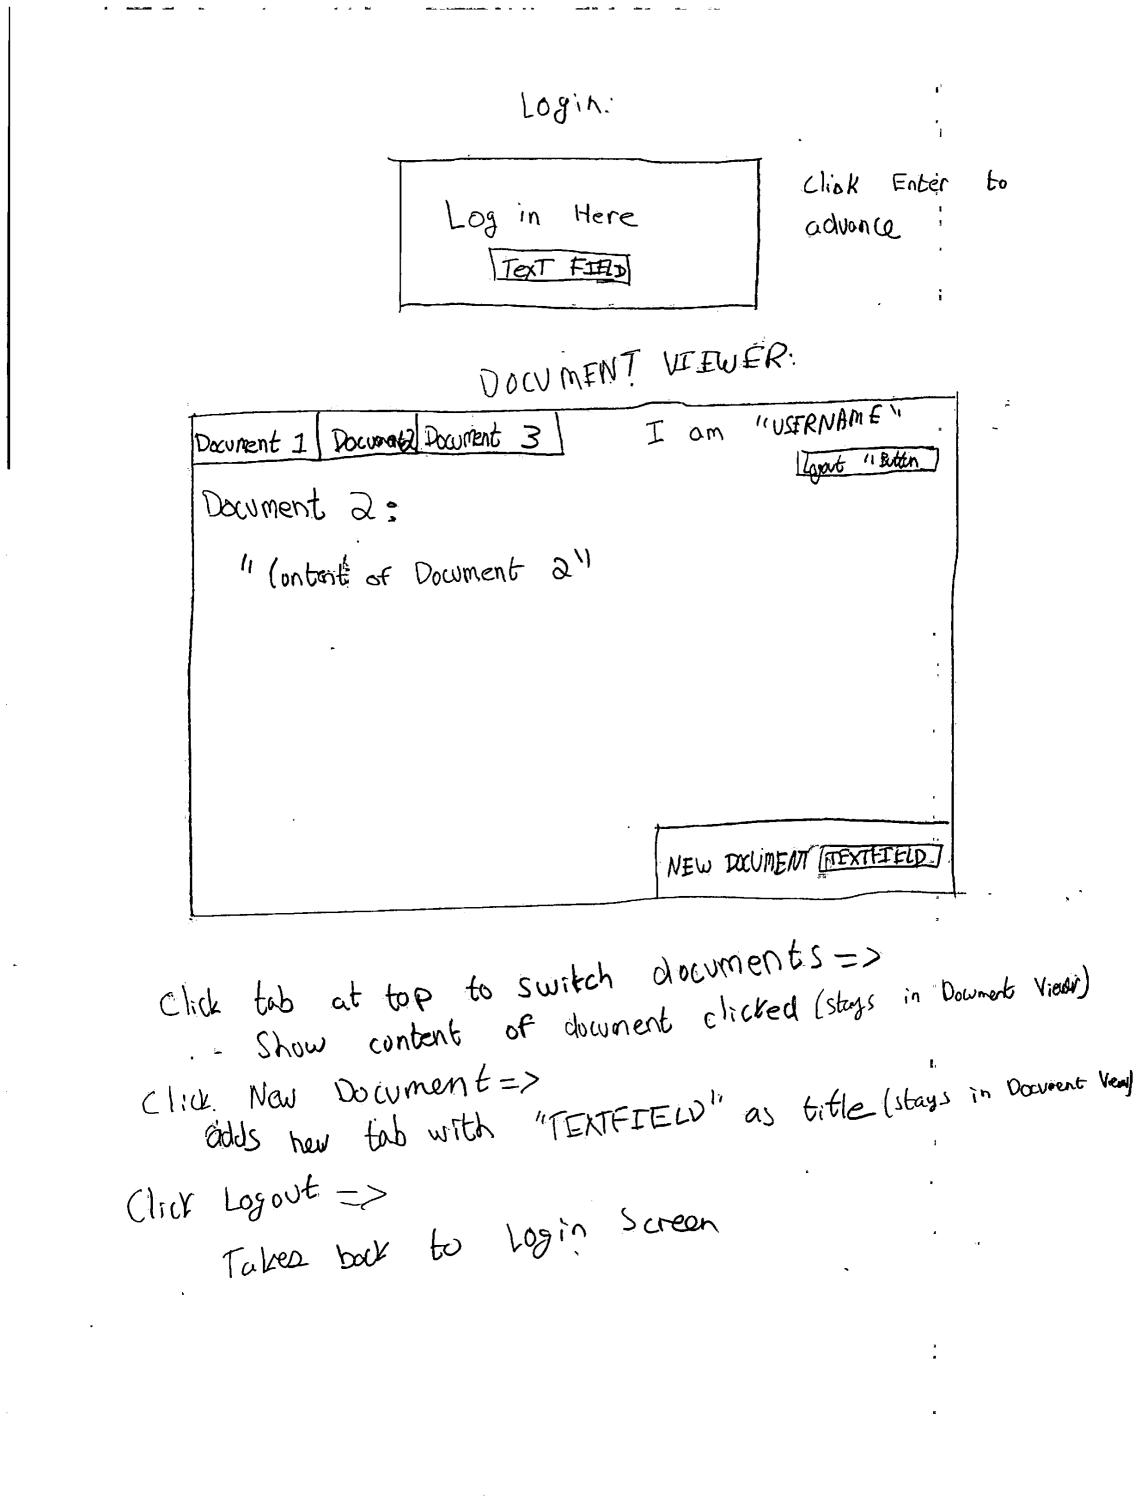 Login:
Log in Here
TexT FIELD
Click Enter to
advance
DOCUMENT VIEWER:
Document 1 Document2 Document 3
I am "USERNAME"
Logout "Button
Document 2:
"Content of Document 2"
NEW DOCUMENT TEXTFIELD
Click tab at top to switch documents =>
Show content of document clicked (stays in Document Viewer)
Click New Document =>
adds new tab with "TEXTFIELD" as title (stays in Document View)
Click Logout =>
Takes back to Login Screen